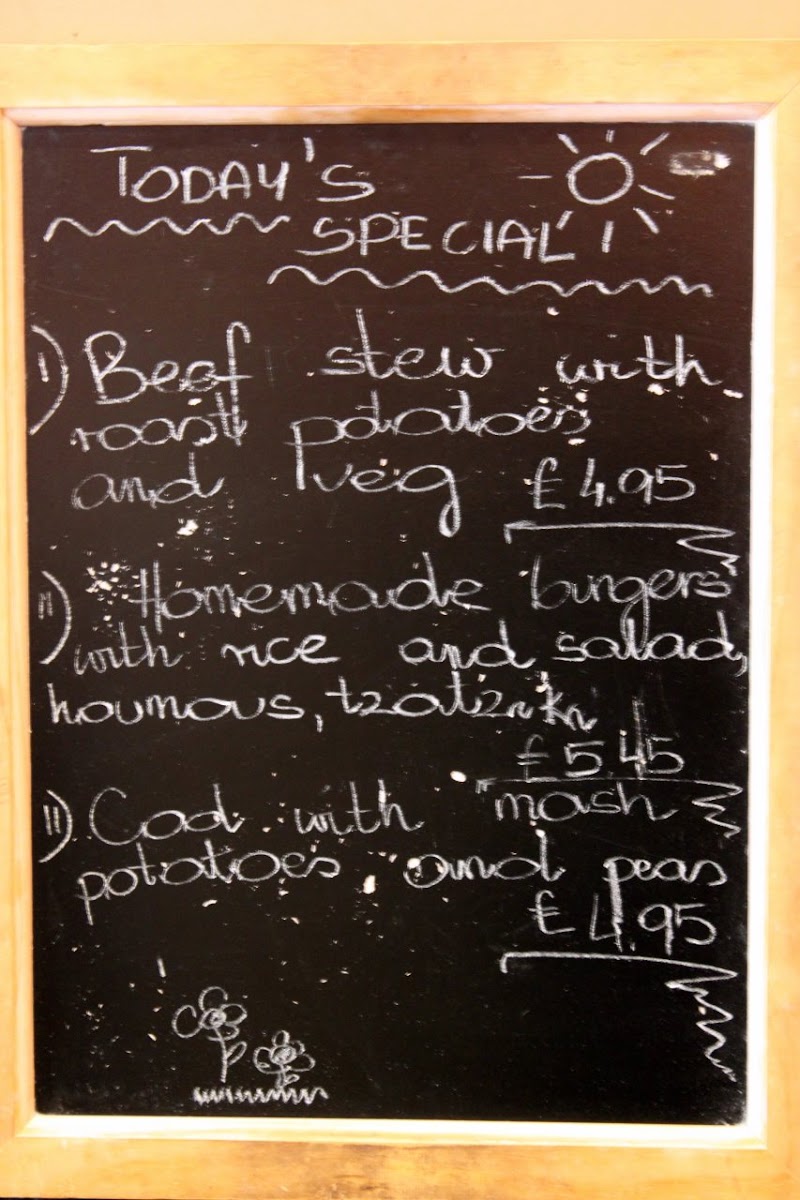 TODAY'S
SPECIAL!
I) Beef stew with
roast potatoes
and veg £4.95
II) Homemade burgers
with rice and salad,
houmous, tzatziki
£5.45
II) Cod with mash
potatoes and peas
£4.95